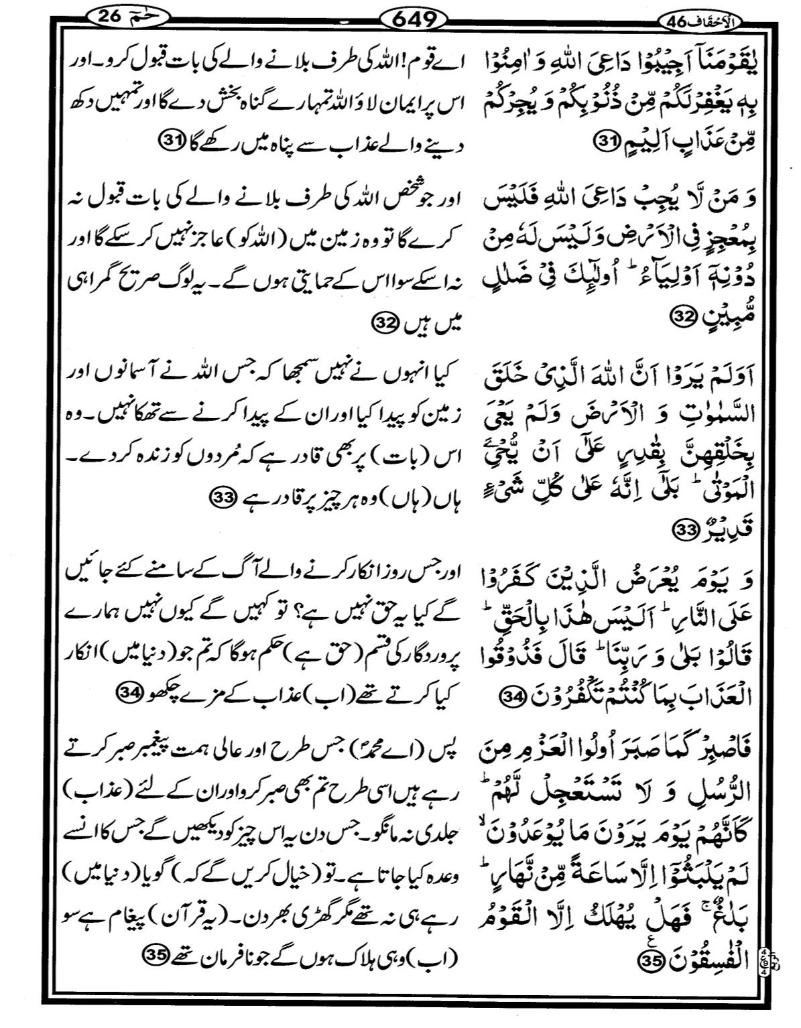 الاحقاف 46
649
حٰمٓ 26
يٰقَوْمَنَآ اَجِيْبُوْا دَاعِيَ اللّٰهِ وَ اٰمِنُوْا
بِهٖ يَغْفِرْ لَكُمْ مِّنْ ذُنُوْبِكُمْ وَ يُجِرْكُمْ
مِّنْ عَذَابٍ اَلِيْمٍ 31
اے قوم! اللہ کی طرف بلانے والے کی بات قبول کرو۔ اور
اس پر ایمان لاؤ اللہ تمہارے گناہ بخش دے گا اور تمہیں دکھ
دینے والے عذاب سے پناہ میں رکھے گا 31
وَ مَنْ لَّا يُجِبْ دَاعِيَ اللّٰهِ فَلَيْسَ
بِمُعْجِزٍ فِي الْاَرْضِ وَ لَيْسَ لَهٗ مِنْ
دُوْنِهٖٓ اَوْلِيَآءُ ؕ اُولٰٓئِكَ فِيْ ضَلٰلٍ
مُّبِيْنٍ 32
اور جو شخص اللہ کی طرف بلانے والے کی بات قبول نہ
کرے گا تو وہ زمین میں (اللہ کو) عاجز نہیں کر سکے گا اور
نہ اسکے سوا اس کے حمایتی ہوں گے۔ یہ لوگ صریح گمراہی
میں ہیں 32
اَوَلَمْ يَرَوْا اَنَّ اللّٰهَ الَّذِيْ خَلَقَ
السَّمٰوٰتِ وَ الْاَرْضَ وَلَمْ يَعْيَ
بِخَلْقِهِنَّ بِقٰدِرٍ عَلٰٓى اَنْ يُّحْيِۦَ
الْمَوْتٰى ؕ بَلٰٓى اِنَّهٗ عَلٰى كُلِّ شَيْءٍ
قَدِيْرٌ 33
کیا انہوں نے نہیں سمجھا کہ جس اللہ نے آسمانوں اور
زمین کو پیدا کیا اور ان کے پیدا کرنے سے تھکا نہیں۔ وہ
اس (بات) پر بھی قادر ہے کہ مُردوں کو زندہ کر دے۔
ہاں (ہاں) وہ ہر چیز پر قادر ہے 33
وَ يَوْمَ يُعْرَضُ الَّذِيْنَ كَفَرُوْا
عَلَى النَّارِ ؕ اَلَيْسَ هٰذَا بِالْحَقِّ ؕ
قَالُوْا بَلٰى وَ رَبِّنَا ؕ قَالَ فَذُوْقُوا
الْعَذَابَ بِمَا كُنْتُمْ تَكْفُرُوْنَ 34
اور جس روز انکار کرنے والے آگ کے سامنے کئے جائیں
گے کیا یہ حق نہیں ہے؟ تو کہیں گے کیوں نہیں ہمارے
پروردگار کی قسم (حق ہے) حکم ہوگا کہ تم جو (دنیا میں) انکار
کیا کرتے تھے (اب) عذاب کے مزے چکھو 34
فَاصْبِرْ كَمَا صَبَرَ اُولُوا الْعَزْمِ مِنَ
الرُّسُلِ وَ لَا تَسْتَعْجِلْ لَّهُمْ ؕ
كَاَنَّهُمْ يَوْمَ يَرَوْنَ مَا يُوْعَدُوْنَ ۙ
لَمْ يَلْبَثُوْٓا اِلَّا سَاعَةً مِّنْ نَّهَارٍ ؕ
بَلٰغٌ ۚ فَهَلْ يُهْلَكُ اِلَّا الْقَوْمُ
الْفٰسِقُوْنَ 35 ع
پس (اے محمدؐ) جس طرح اور عالی ہمت پیغمبر صبر کرتے
رہے ہیں اسی طرح تم بھی صبر کرو اور ان کے لئے (عذاب)
جلدی نہ مانگو۔ جس دن یہ اس چیز کو دیکھیں گے جس کا انسے
وعدہ کیا جاتا ہے۔ تو (خیال کریں گے کہ) گویا (دنیا میں)
رہے ہی نہ تھے مگر گھڑی بھر دن۔ (یہ قرآن) پیغام ہے سو
(اب) وہی ہلاک ہوں گے جو نافرمان تھے 35